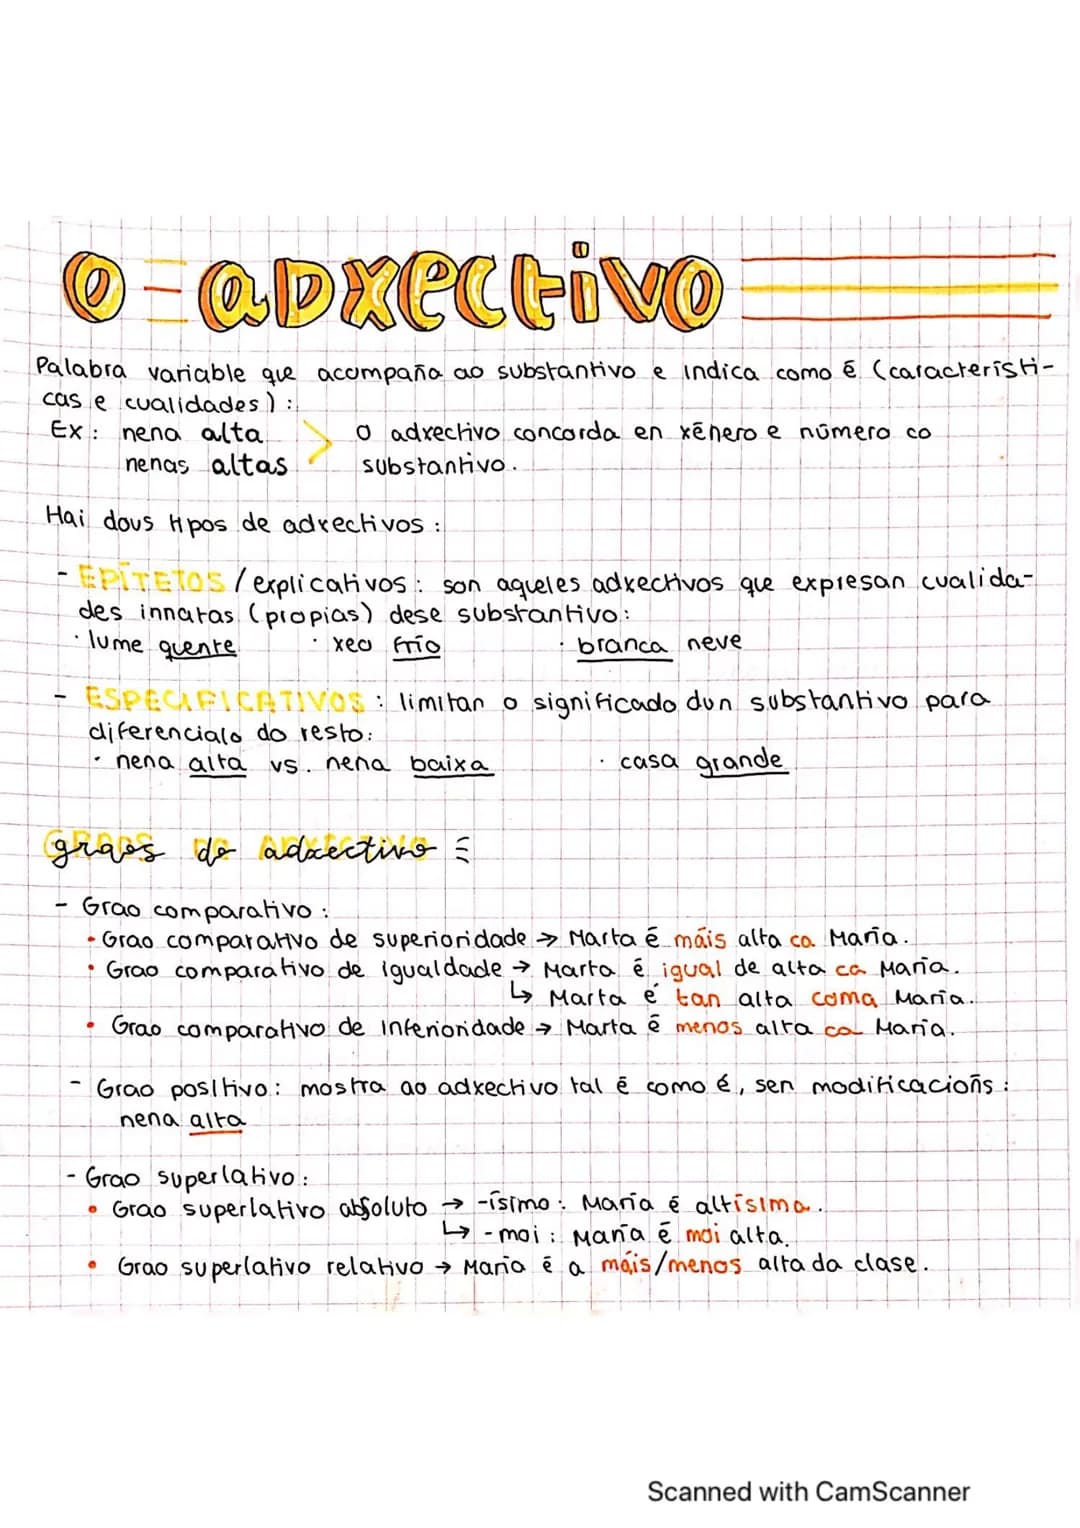 O adxectivo
Palabra variable que acompaña ao substantivo e indica como é (característi-
cas e cualidades):
Ex: nena alta
nenas altas
o adxectivo concorda en xénero e número co
substantivo.
Hai dous tipos de adxectivos:
- EPÍTETOS / explicativos: son aqueles adxectivos que expresan cualida-
des innatas (propias) dese substantivo:
· lume quente · xeo frío · branca neve
- ESPECIFICATIVOS: limitan o significado dun substantivo para
diferencialo do resto:
· nena alta vs. nena baixa · casa grande
graos do adxectivo
- Grao comparativo:
• Grao comparativo de superioridade → Marta é máis alta ca María.
• Grao comparativo de igualdade → Marta é igual de alta ca María.
↳ Marta é tan alta coma María.
• Grao comparativo de inferioridade → Marta é menos alta ca María.
- Grao positivo: mostra ao adxectivo tal e como é, sen modificacións:
nena alta
- Grao superlativo:
• Grao superlativo absoluto → -ísimo: María é altísima.
↳ - moi: María é moi alta.
• Grao superlativo relativo → María é a máis/menos alta da clase.
Scanned with CamScanner